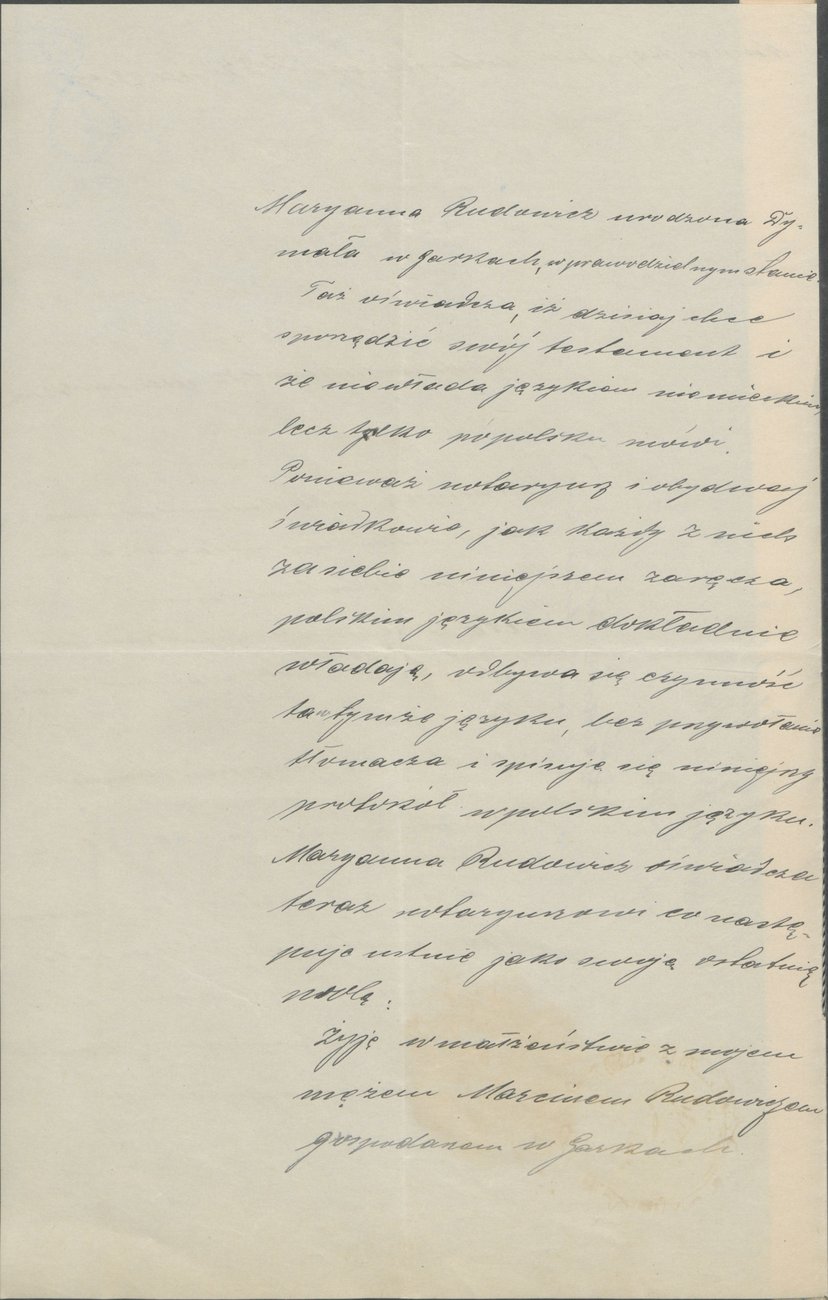 Maryanna Rudowicz urodzona Dy-
mała w Garkach, w prawodzielnym stanie.
Taż oświadcza, iż dzisiaj chce
sporządzić swój testament i
że niewłada językiem niemieckim,
lecz tylko popolsku mówi.
Ponieważ notaryusz i obydwaj
świadkowie, jak każdy z nich
zasiebie niniejszem zaręcza,
polskim językiem dokładnie
władają, odbywa się czynność
ta w tymże języku, bez przywołania
tłomacza i spisuje się niniejszy
protokół w polskim języku.
Maryanna Rudowicz oświadcza
teraz notaryuszowi co nastę-
puje ustnie jako swoją ostatnią
wolę:
Żyję w małżeństwie z mojem
mężem Marcinem Rudowiczem
gospodarzem w Garkach.